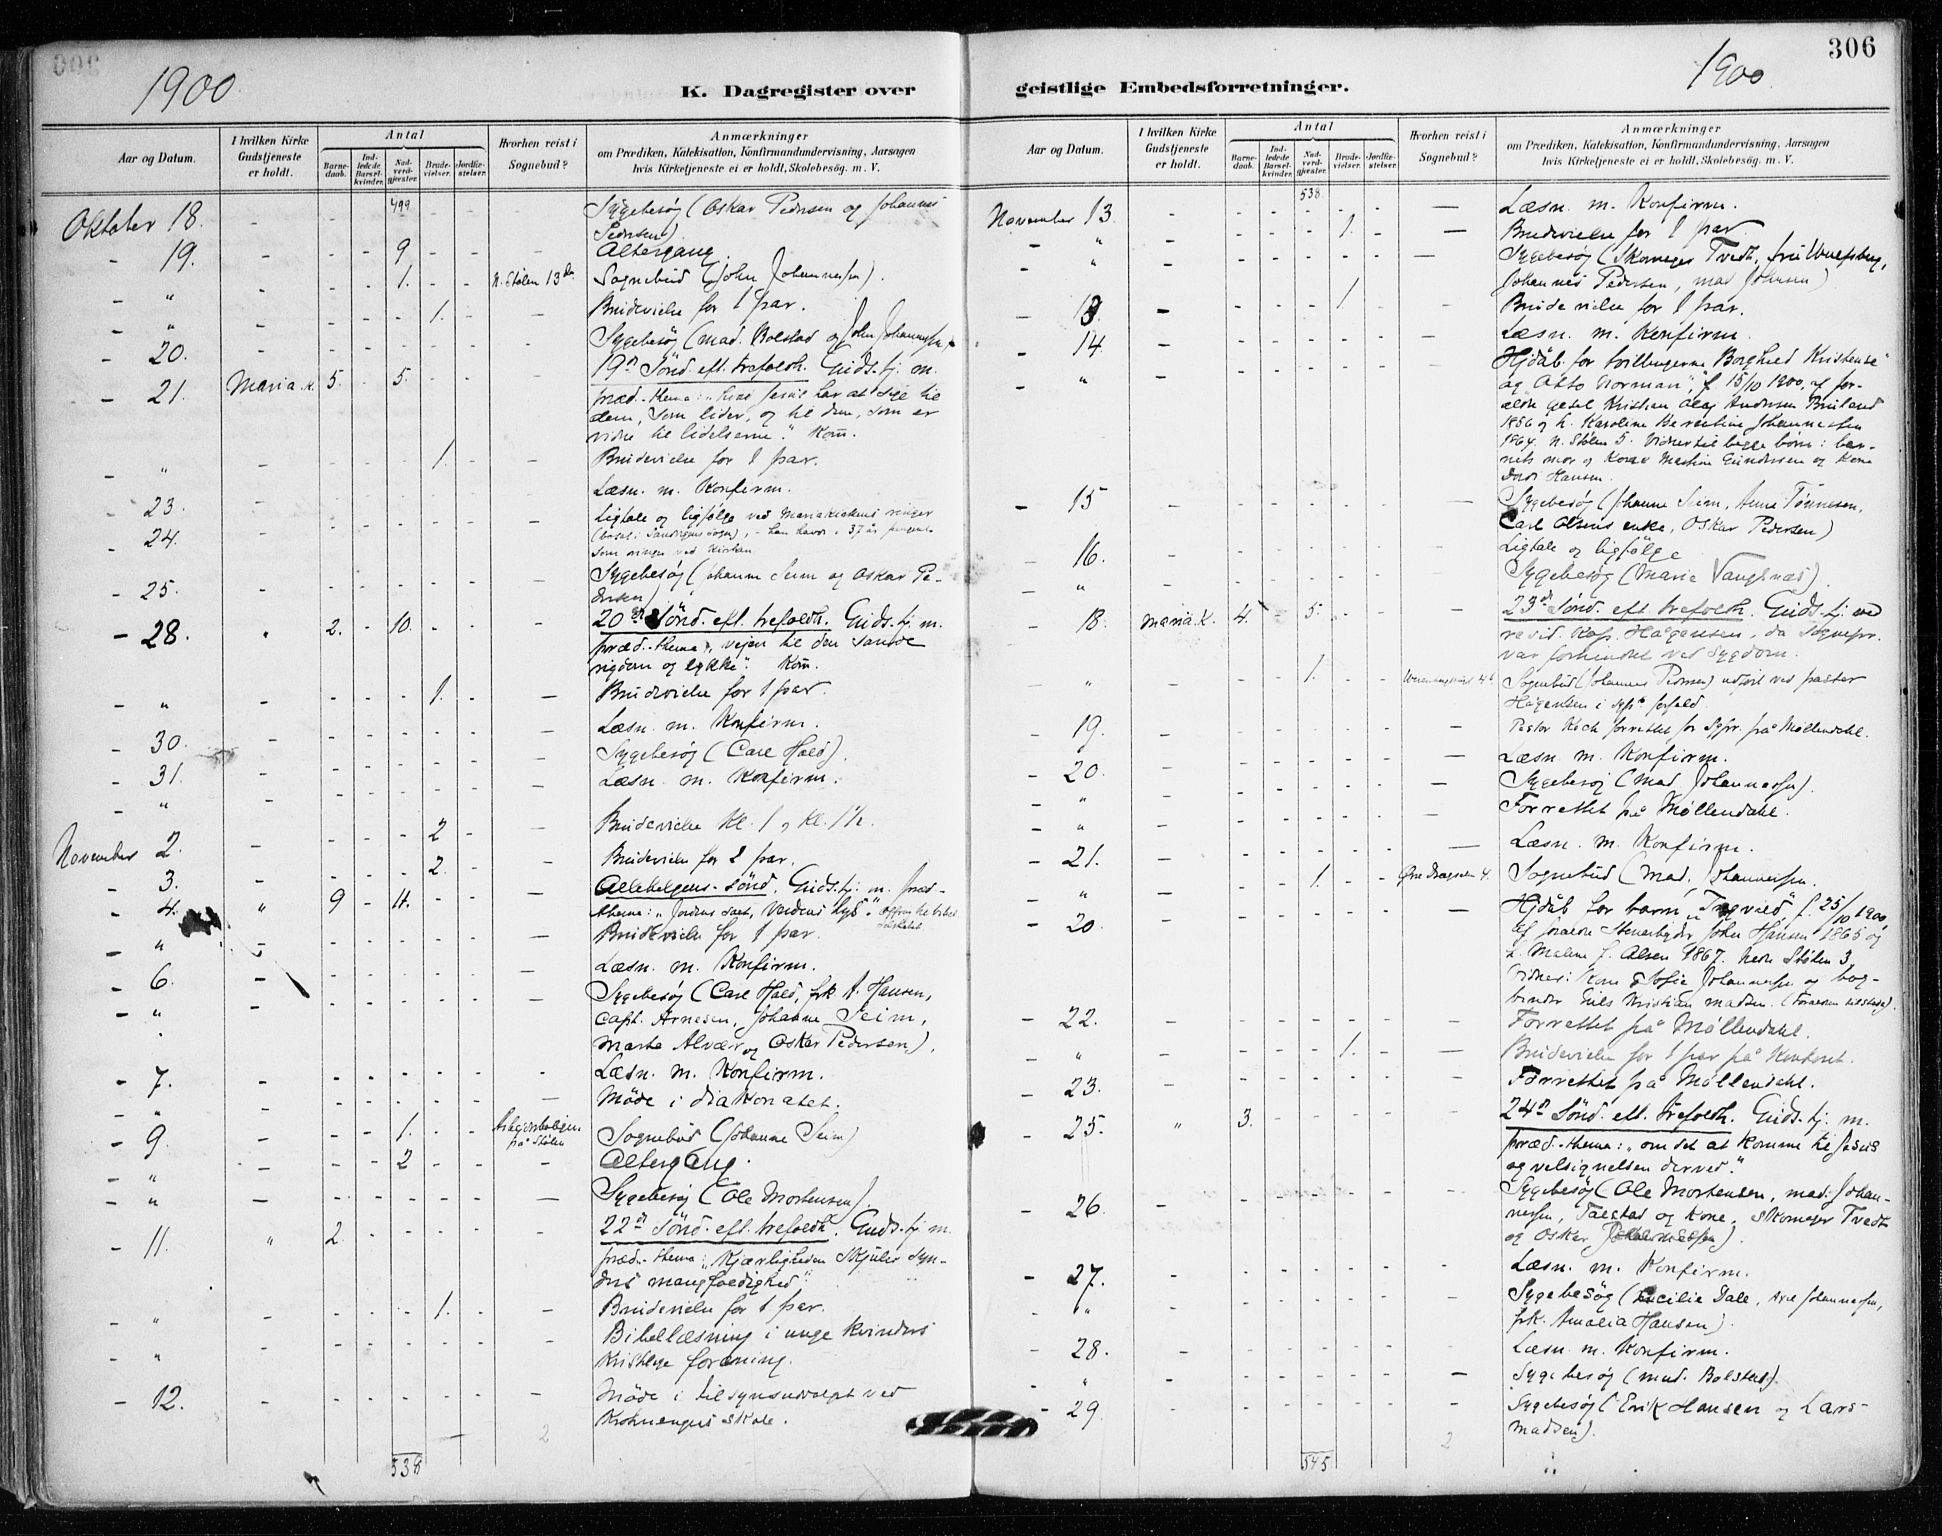 306
1900
1900
K. Dagregister over
geistlige Embedsforretninger.
Aar og Datum.
I hvilken Kirke Gudstjeneste er holdt.
Antal
Barnedaab.
Indledede Barselkvinder.
Nadverdgjester.
Brudevielser.
Jordfæstelser.
Hvorhen reist i Sognebud?
Anmærkninger
om Prædiken, Katekisation, Konfirmandundervisning, Aarsagen
hvis Kirketjeneste ei er holdt, Skolebesøg. m. V.
499
Oktober 18. - - - - - - Sygebesøg (Oskar Pedersen og Johannes
Pedersen).
- 19. - - - 9 - - - Altergang.
- " - - - 1. - - N. Stølen 13 Sognebud (John Johannessen).
- " - - - - 1. - - Brudevielse for 1 par.
- 20. - - - - - - Sygebesøg (mad. Bolstad og John Johannessen
- 21. Maria k. 5. - 5. - - - 19 Sönd. eft. trefoldh. Guds. tj. m.
præd.-thema: " Jesus har at sige til
dem, som lider, og til dem, som er
vidne til lidelserne." Kom.
- " - - - - 1. - - Brudevielse for 1 par.
- 23. - - - - - - Læsn. m. Konfirm.
- 24. - - - - - - Ligtale og ligfølge ved Mariakirkens ringer
- han havde i 37 år
som ringer ved kirken
- 25. - - - - - - Sygebesøg (Johanne Seim og Oskar Pe-
dersen)
- 28. " 2. - 10. - - - 20 Sönd. eft. trefoldh. Guds. tj. m.
præd.-thema: "vejen til den sande
rigdom og lykke". Kom.
- " - - - - 1. - - Brudevielse for 1 par.
- 30. - - - - - - Læsn. m. Konfirm.
Sygebesøg (Carl Hald).
- 31. - - - - - - Læsn. m. Konfirm.
- "
November 2. - - - - 2 - - Brudevielse Kl. 1 og Kl. 1½.
- 3. - - - - 2. - - Brudevielse for 2 par.
- 4. " 9 - 11. - - - Allehelgens-sönd. Guds. tj. m. præd-
thema: "Jordens salt, verdens lys".
- " - - - - - - Brudevielse for 1 par.
- 6. - - - - - - Læsn. m. Konfirm.
- " - - - - - - Sygebesøg (Carl Hald, frk A. Hansen,
Capt. Arnesen, Johanne Seim,
Marte Alvær og Oskar Pedersen).
- 7. - - - - - - Læsn. m. Konfirm.
- " - - - - - - Møde i diakonatet.
- 9. - - - 1. - - på Stølen Sognebud (Johanne Seim)
- " - - - 2 - - - Altergang.
- " - - - - - - Sygebesøg (Ole Mortensen)
- 11. " 2. - - - - 22 Sönd. eft. trefoldh. Guds. tj. m.
præd.-thema: "Kjærligheden skjuler syn-
ders mangfoldighed"
- " - - - - 1. - - Brudevielse for 1 par.
- " - - - - - - Bibellæsning i unge kvinders
kristlige forening.
- 12. - - - - - - Møde i tilsynsudvalget ved
Krohnengens skole.
538
2
Aar og Datum.
I hvilken Kirke Gudstjeneste er holdt.
Antal
Barnedaab.
Indledede Barselkvinder.
Nadverdgjester.
Brudevielser.
Jordfæstelser.
Hvorhen reist i Sognebud?
Anmærkninger
om Prædiken, Katekisation, Konfirmandundervisning, Aarsagen
hvis Kirketjeneste ei er holdt, Skolebesøg. m. V.
538
November 13. - - - - - - Læsn. m. Konfirm.
- " - - - - 1. - - Brudevielse for 1 par.
- " - - - - - - Sygebesøg (Skomager Tvedt, fru
Johannes Pedersen, mad Johnsen)
- 13. - - - - 1. - - Brudevielse for 1 par.
- 14. - - - - - - Læsn. m. Konfirm.
- " - - - - - - Hjdåb for tvillingerne "Borghild Kristense"
og "Otto Norman", f. 15/10 1900, af for-
ældre gesel Kristian Olaj Andersen
1856 og h. Karoline Berentine Johannessen
1864. N. Stølen 5. Vidner til begge børn: bar-
nets mor og Kone Martine Gundersen og Kone
Hansen.
- 15 - - - - - - Sygebesøg (Johanne Seim, Anne Tønnesen,
Carl Olsens enke, Oskar Pedersen)
- 16. - - - - - - Ligtale og ligfølge
- " - - - - - - Sygebesøg (Marie Vangsnæs).
- 18. Maria K. 4. - 5. - - - 23 Sönd. eft. trefoldh. Guds. tj. ved
resid. Kap. Hågensen, da sognepr.
var forhindret ved sygdom.
- " - - - 1. - - Sognebud (Johannes Pedersen) udført ved pastor
Hågensen i forfald.
- 19. - - - - - - Pastor Koch forrettet for Sgpr. på Møllendahl.
- 20. - - - - - - Læsn. m. Konfirm.
- " - - - - - - Sygebesøg (Mad. Johannessen).
- " - - - - - - Forrettet på Møllendahl.
- 21. - - - - - - Læsn. m. Konfirm.
- " - - - 1. - - Øvre Dregsalm. 4. Sognebud (Mad. Johannessen.
- 20. - - - - - - Hjdåb for barn "Ingvild" f. 25/10 1900
af forældre Stenarbejder John Hansen 1865 og
h. Malene f. Olsen 1867. nedre Stølen 3.
Vidner: Kone Sofie Johannessen og bog-
binder Nils Kristian Madsen.
- 22. - - - - - - Forrettet på Møllendahl.
- " - - - - 1. - - Brudevielse for 1 par på Kontoret.
- 23. - - - - - - Forrettet på Møllendahl.
- 25. " 3. - - - - 24 Sönd. eft. trefoldh. Guds. tj. m.
præd.-thema: "om det at komme til Jesus
og velsignelsen derved."
- 26. - - - - - - Sygebesøg (Ole Mortensen, mad. Johan-
nessen, Talstad og Kone, Skomager Tvedt
og Oskar
- 27. - - - - - - Læsn. m. Konfirm.
- " - - - - - - Sygebesøg (Cecilie Dale, Johannessen,
frk. Amalia Hansen).
- 28. - - - - - - Læsn. m. Konfirm.
- " - - - - - - Sygebesøg (mad. Bolstad).
- 29. - - - - - - Sygebesøg (Erik Hansen og Lars
Madsen).
545
2